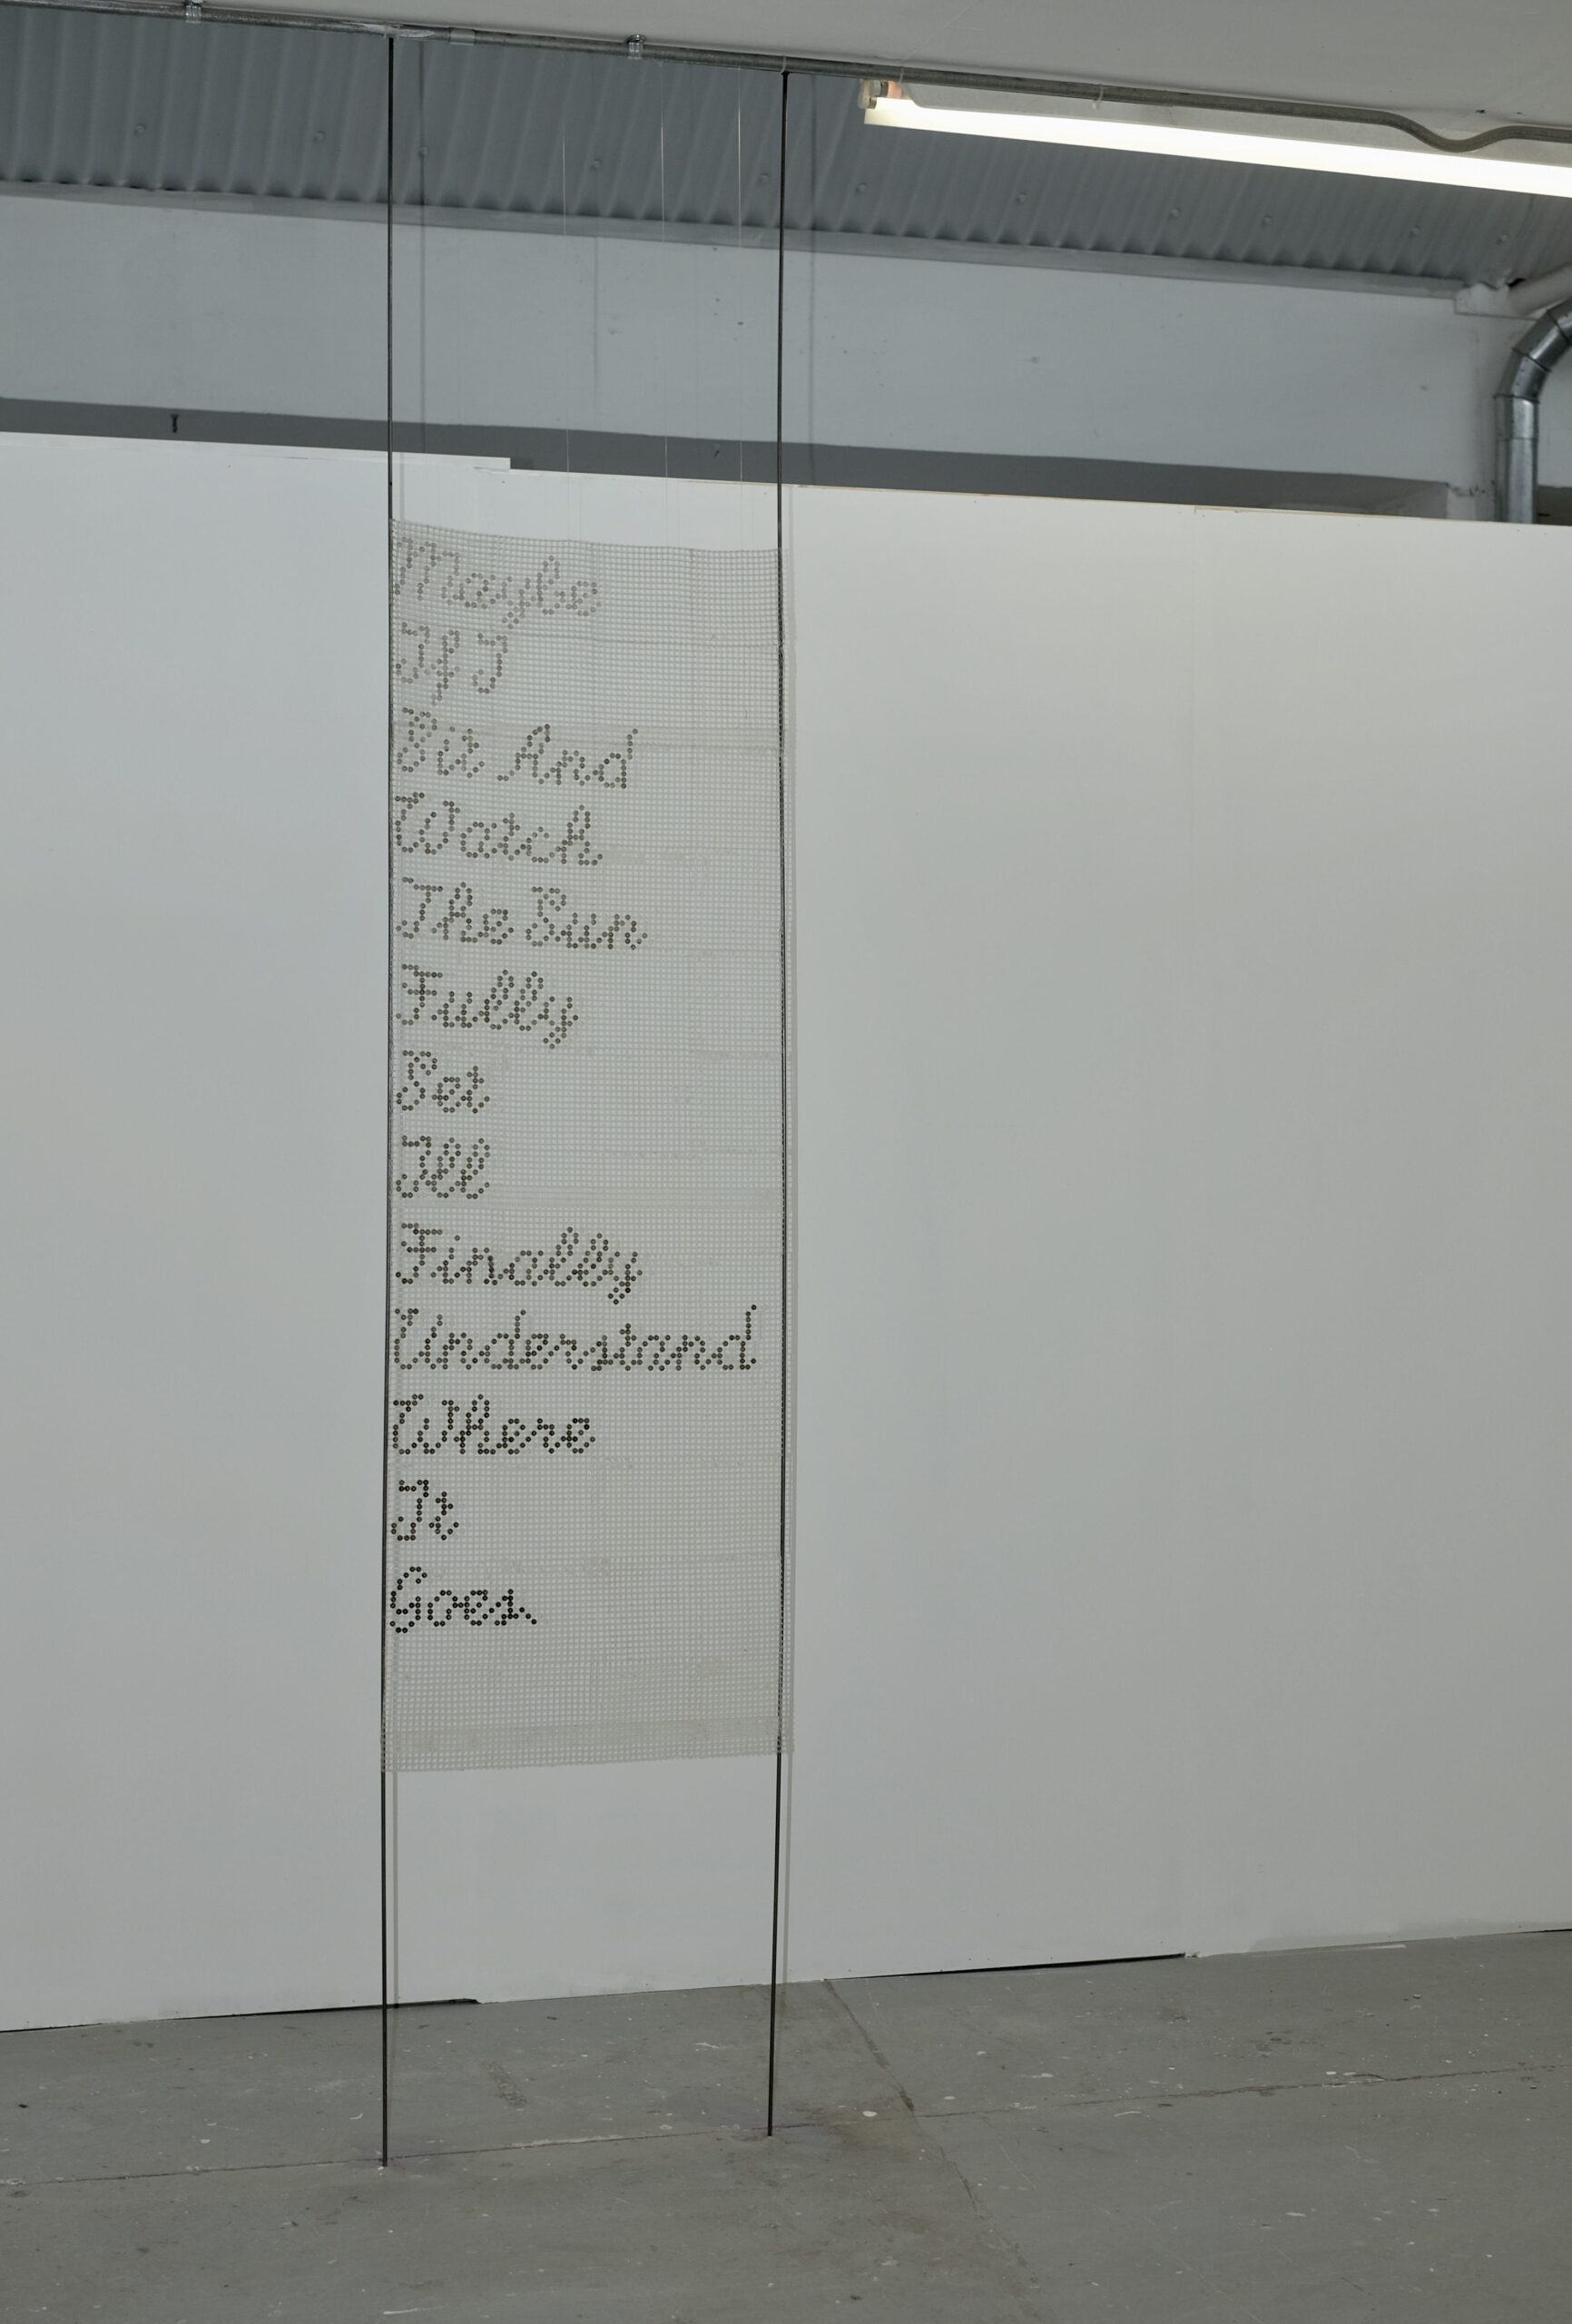 Maybe
If I
Sit And
Watch
The Sun
Fully
Set
Ill
Finally
Understand
Where
It
Goes